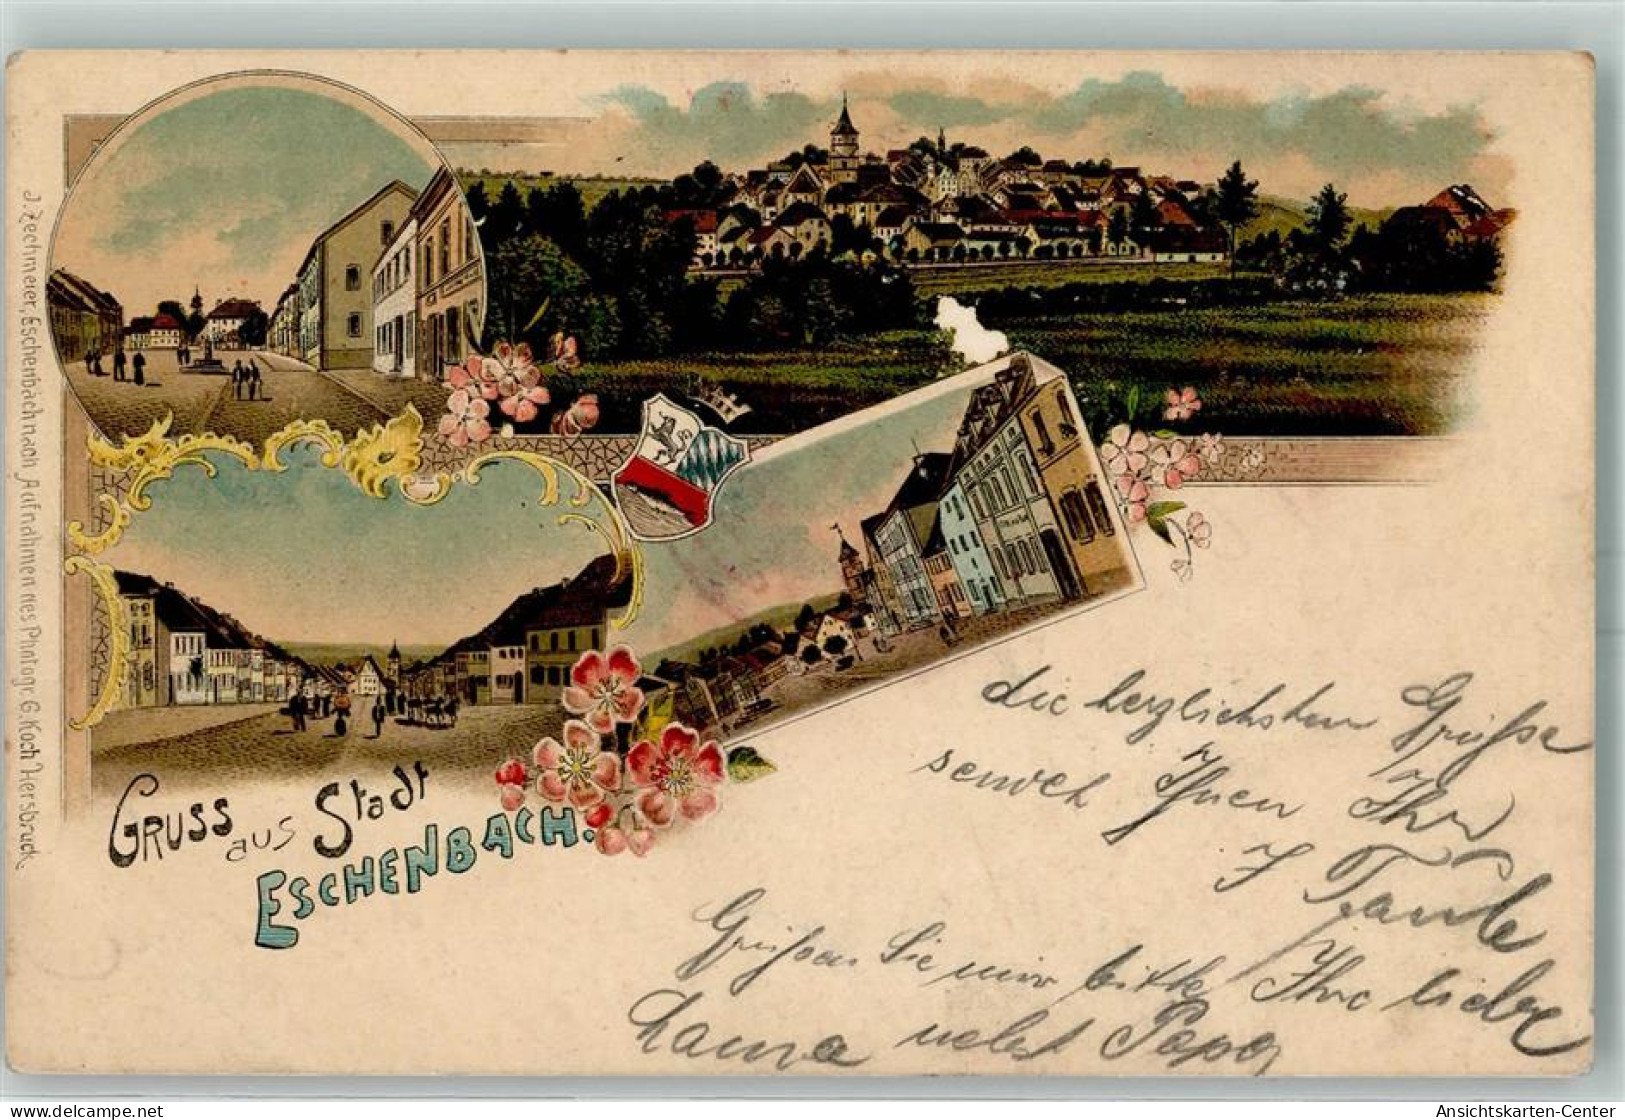 J. Zechmeier, Eschenbach nach Aufnahmen des Photogr. G. Koch Hersbruck.
GRUSS aus Stadt
ESCHENBACH.
die herzlichsten Grüsse
Ihnen Ihr
J Taube
Grüssen Sie mir bitte Ihre liebe
Mama nebst Papa
Ansichtskarten-Center